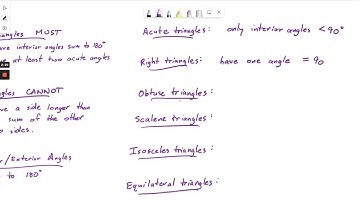 iangles MUST
ave interior angles sum to 180°
at least two acute angles
gles CANNOT
ve a side longer than
sum of the other
o sides.
r/Exterior Angles
to 180°
Acute triangles: only interior angles < 90°
Right triangles: have one angle = 90
Obtuse triangles:
Scalene triangles:
Isosceles triangles:
Equilateral triangles: